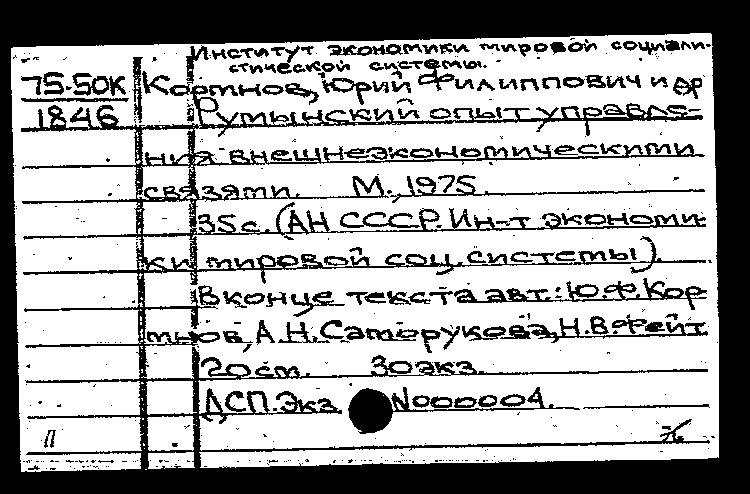 Институт экономики мировой социали-
стической системы.
75-50К Кортнов, Юрий Филиппович и др
1846 Румынский опыт управле-
ния внешнеэкономическими
связями. М., 1975.
35с. (АН СССР. Ин-т экономи-
ки мировой соц. системы).
В конце текста авт.: Ю.Ф. Кор-
тнов, А.Н. Саморукова, Н.В. Фейт.
20 см. 30 экз.
ДСП. Экз. N000004.
П